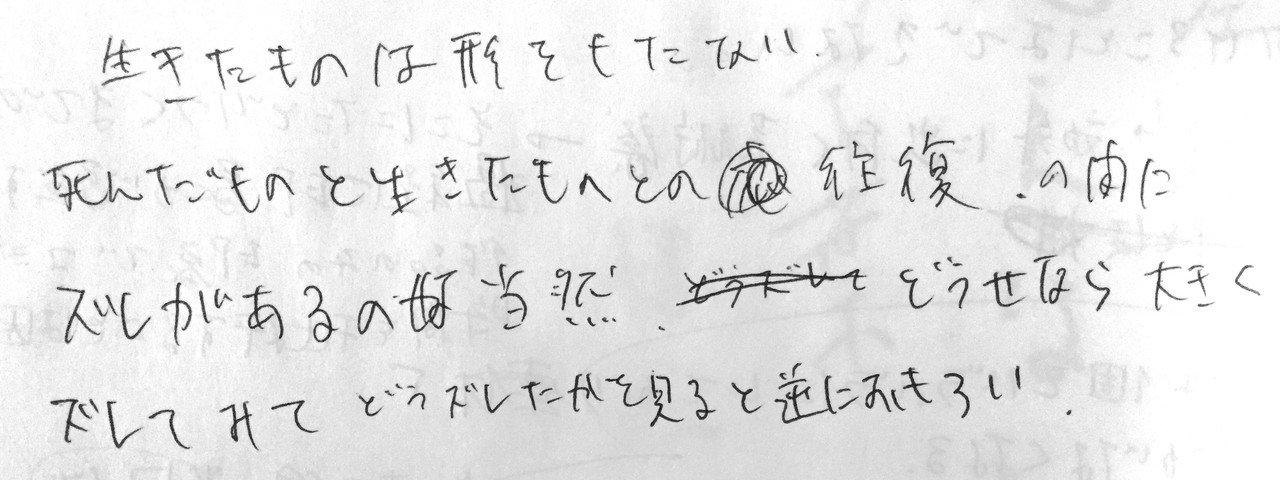 生きたものは形をもたない.
死んだものと生きたものとの 往復.の間に
ズレがあるのは当然. どうズレて どうせなら大きく
ズレてみて どうズレたかを見ると逆におもろい.